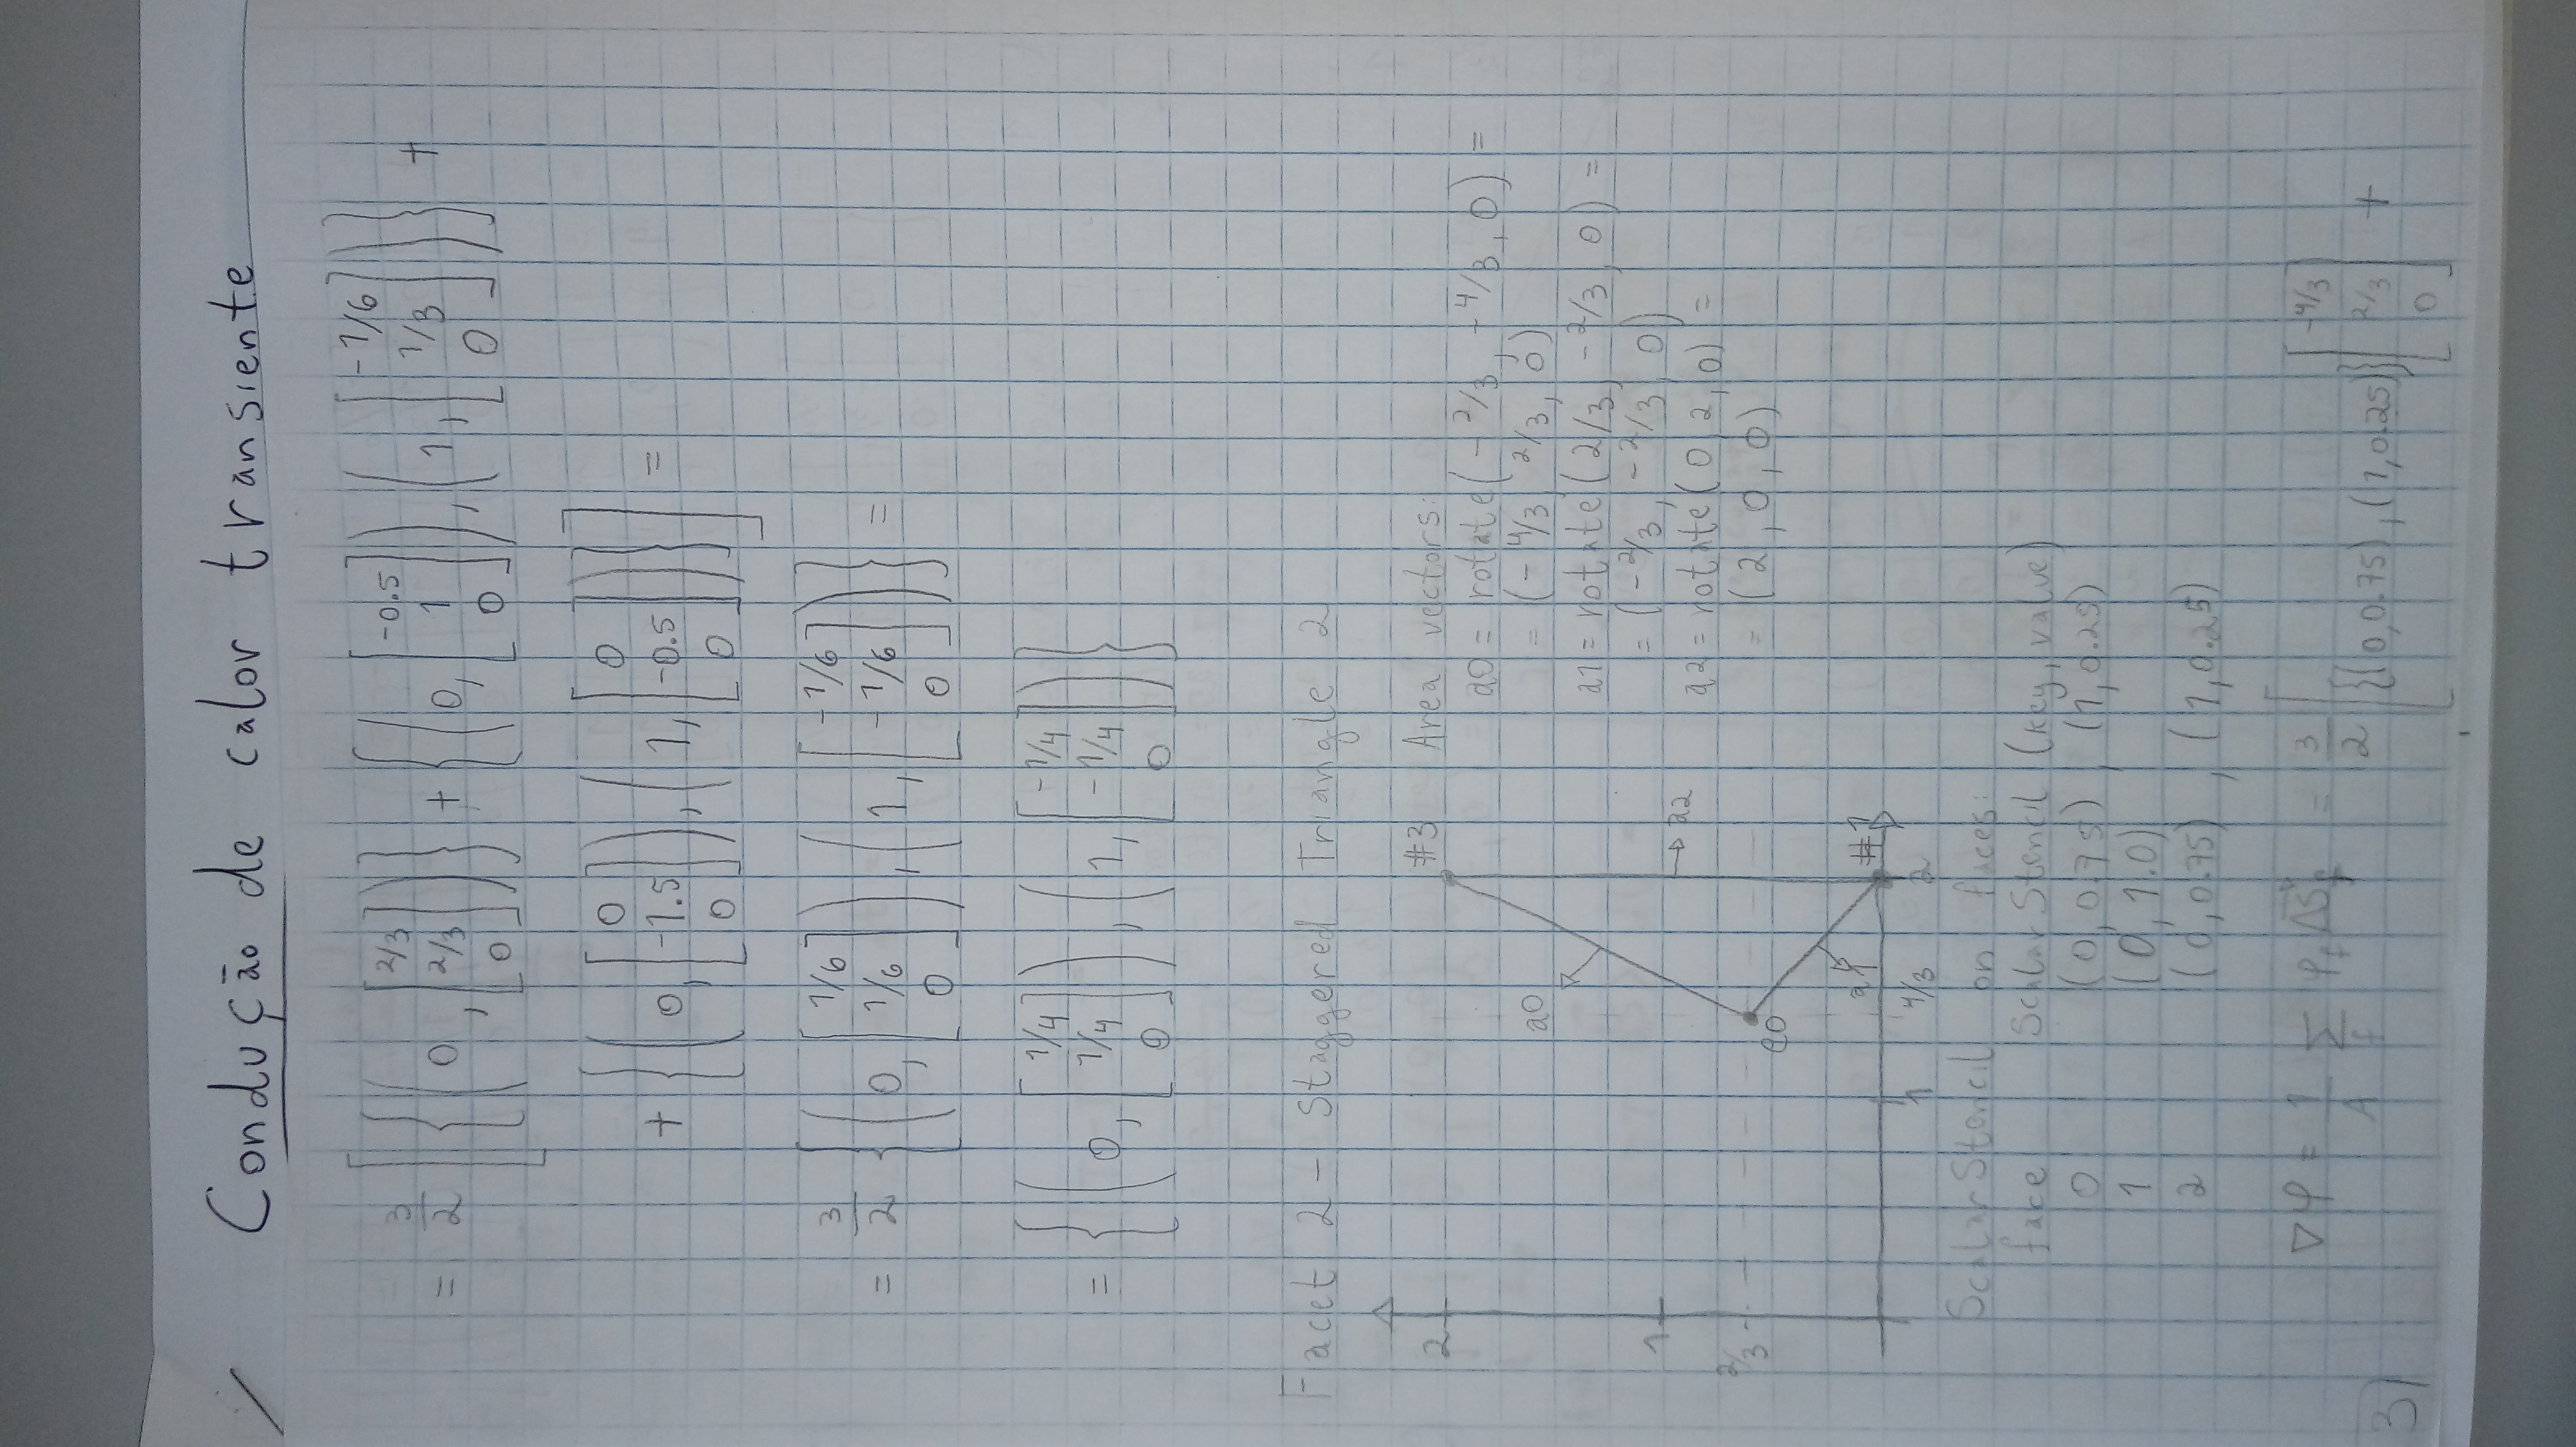 Condução de calor transiente
= 3/2 [ { ( 0, [ 2/3 2/3 0 ] ) } + { ( 0, [ -0.5 1 0 ] ), ( 1, [ -1/6 1/3 0 ] ) } +
+ { ( 0, [ 0 -1.5 0 ] ), ( 1, [ 0 -0.5 0 ] ) } ] =
= 3/2 { ( 0, [ 1/6 1/6 0 ] ), ( 1, [ -1/6 -1/6 0 ] ) } =
= { ( 0, [ 1/4 1/4 0 ] ), ( 1, [ -1/4 -1/4 0 ] ) }
Facet 2 - Staggered Triangle 2
2
#3
a0
1
a2
2/3
e0
a1
#1
1
4/3
2
Area vectors:
a0 = rotate(-2/3, -4/3, 0) =
= (-4/3 2/3, 0)
a1 = rotate(2/3, -2/3, 0) =
= (-2/3, -2/3, 0)
a2 = rotate(0, 2, 0) =
= (2, 0, 0)
ScalarStencil on faces:
face ScalarStencil (key, value)
0 (0, 0.75), (1, 0.25)
1 (0, 1.0)
2 (0, 0.75), (1, 0.25)
∇φ = 1/A Σf φf ΔSf = 3/2 [ {(0, 0.75), (1, 0.25)} [ -4/3 2/3 0 ] +
31